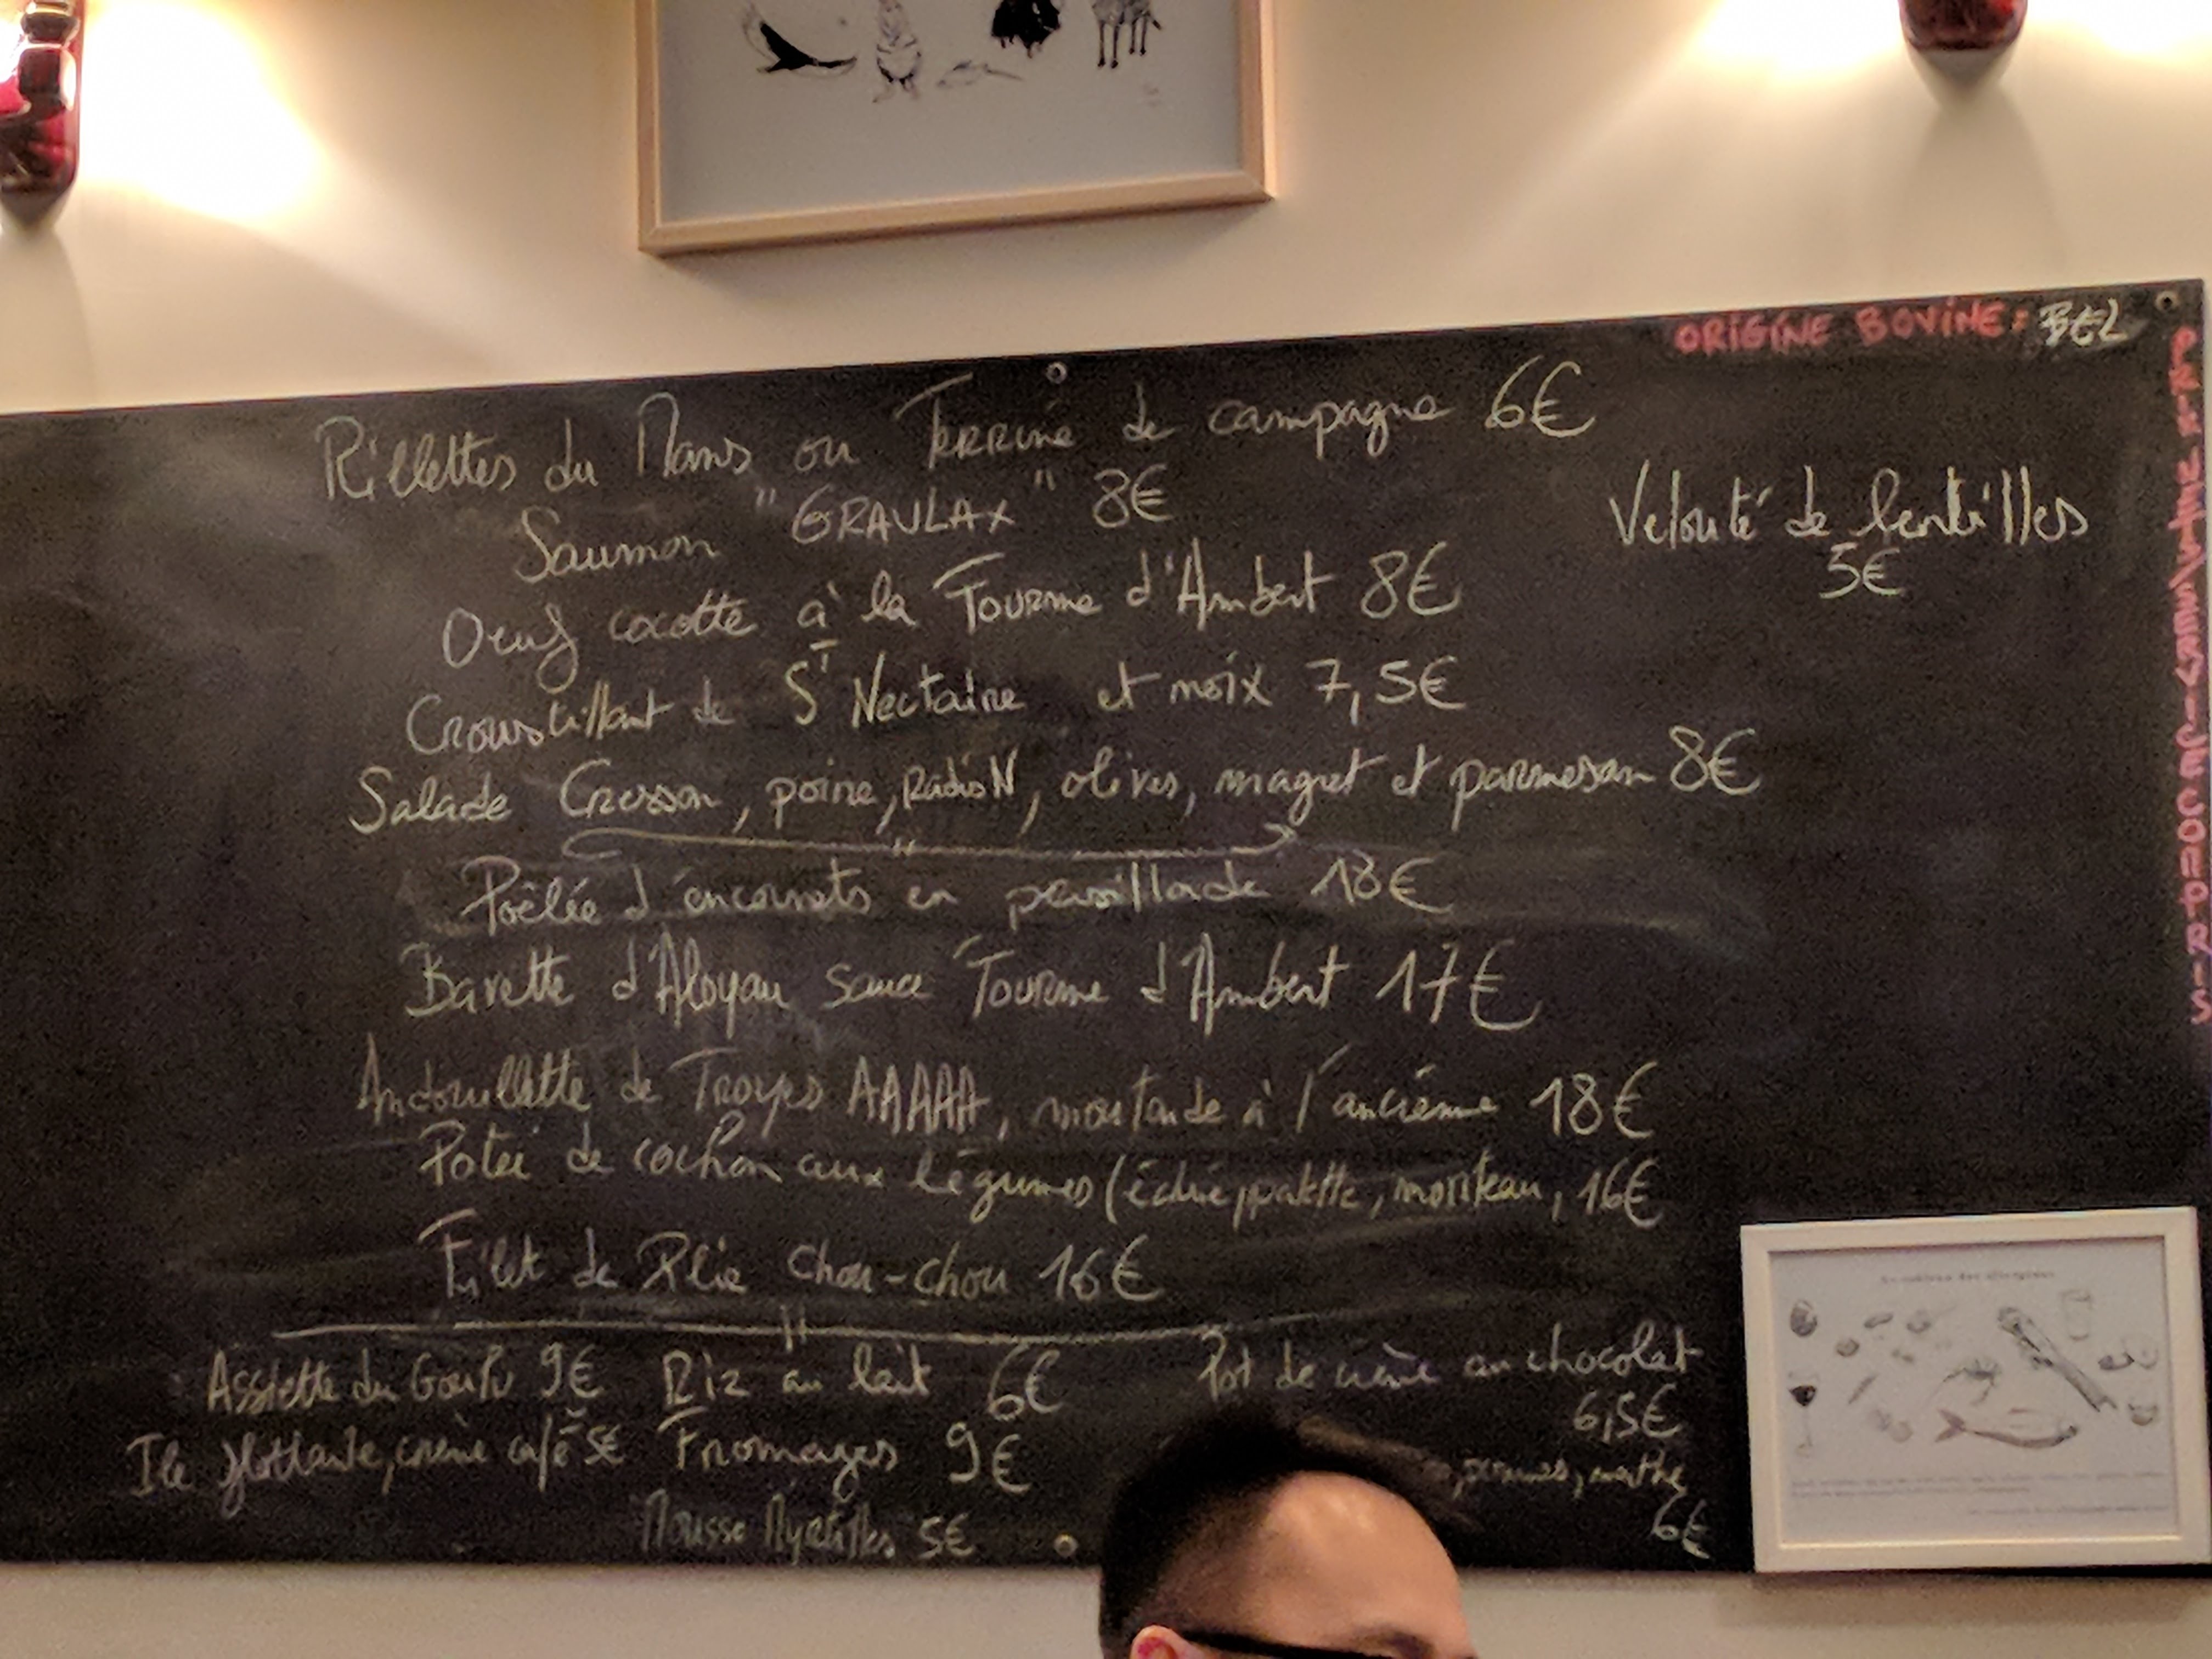 ORIGINE BOVINE: BEL
Rillettes du Mans ou Terrine de campagne 6€
Saumon "GRAVLAX" 8€
Velouté de lentilles
5€
Oeuf cocotte à la Fourme d'Ambert 8€
Croustillant de ST Nectaire et noix 7,5€
Salade Cresson, poire, RadisN, olives, magret et parmesan 8€
Poêlée d'encornets en persillade 18€
Bavette d'Aloyau sauce Fourme d'Ambert 17€
Andouillette de Troyes AAAAA, moutarde à l'ancienne 18€
Potée de cochon aux légumes (échine, palette, morteau, 16€
Filet de Plie chou-chou 16€
Assiette du Goulu 9€ Riz au lait 6€ Pot de crème au chocolat
6,5€
Ile flottante, crème café 5€ Fromages 9€
menthe
6€
Mousse Myrtilles 5€
PRIX NETS/SERVICE COMPRIS